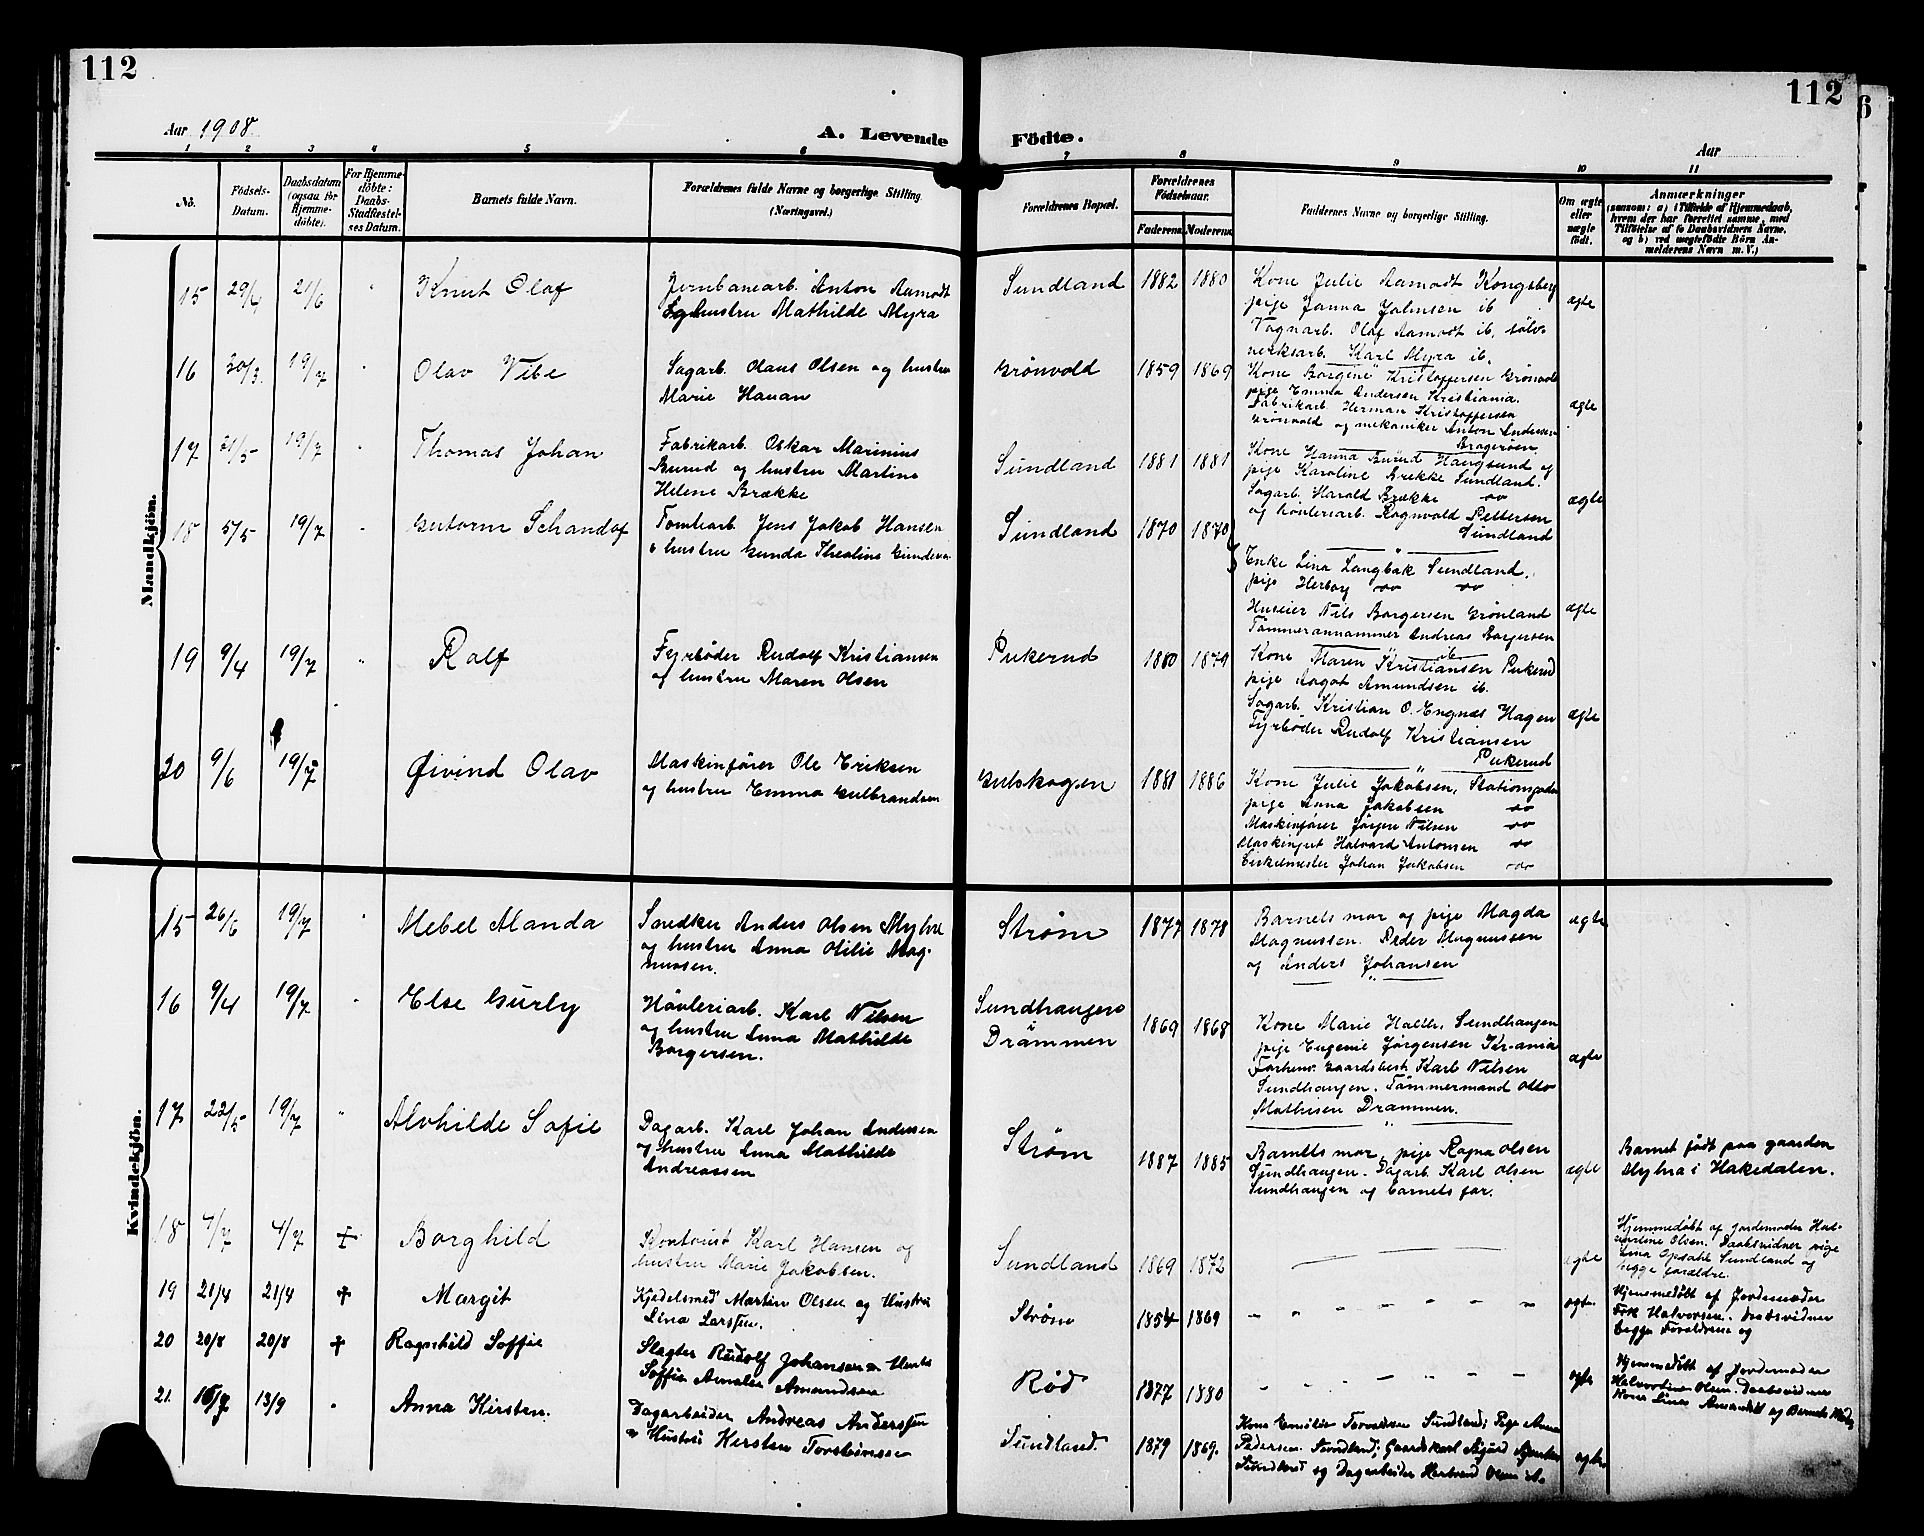 112
112
Aar 1908.
A. Levende Födte.
Aar
1 2 3 4 5 6 7 8 9 10 11
No.
Födsels-
Datum.
Daabsdatum
(ogsaa for
Hjemme-
döbte).
For Hjemme-
döbte:
Daabs-
Stadfæstel-
ses Datum.
Barnets fulde Navn.
Forældrenes fulde Navne og borgerlige Stilling.
(Næringsvei.)
Forældrenes Bopæl.
Forældrenes
Födselsaar.
Faderens. Moderens.
Faddernes Navne og borgerlige Stilling.
Om ægte
eller
uægte
født.
Anmærkninger
(saasom: a) i Tilfælde af Hjemmedaab,
hvem der har forrettet samme, med
Tilföielse af to Daabsvidners Navne,
og b) ved uægtefödte Börn An-
melderens Navn m. V.)
Mandkjön.
15 29/4 21/6 Knut Olaf
Jernbanearb. Anton Aamodt
hustru Mathilde Myra
Sundland 1882 1880
Kone Julie Aamodt Kongsberg
pige Janna Johnsen ib
Vognarb. Olaf Aamodt ib. sølv-
verksarb. Karl Myra ib.
ægte
16 30/3 19/7 Olav Vibe
Sagarb. Olaus Olsen og hustru
Marie Hauan
Grönvold 1859 1869
Kone Borgine Kristoffersen Grönvold
pige Emma Andersen Kristiania.
Fabrikarb. Herman Kristoffersen
Grönvold og mekaniker Anton Andersen
Bragerøen
ægte
17 21/5 19/7 Thomas Johan
Fabrikarb. Oskar Marinius
Burud og hustru Martine
Helene Brække
Sundland 1881 1881
Kone Hanna Burud Haugsund og
pige Karoline Brekke Sundland.
Sagarb. Harald Brække
og høvleriarb. Ragnvald Pettersen
Sundland
ægte
18 5/5 19/7 Gutorm Schandof
Tomtearb. Jens Jakob Hansen
o hustru Gunda Thealine
Sundland 1870 1870
Enke Lina Langbak Sundland.
pige Herborg
Huseier Nils Borgersen Grønland
Tømmerannammer Andreas Borgersen
ib
ægte
19 9/4 19/7 Ralf
Fyrbøder Rudolf Kristiansen
og hustru Maren Olsen
Pukerud 1880 1879
Kone Maren Kristiansen Pukerud
pige Aagot Amundsen ib.
Sagarb. Kristian O. Engnæs Hagen
Fyrbøder Rudolf Kristiansen
Pukerud
ægte
20 9/6 19/7 Øivind Olav
Maskinfører Ole Eriksen
og hustru Emma Gulbrandsen
Gulskogen 1881 1886
Kone Julie Jakobsen,
pige Anna Jakobsen
Maskinfører Jørgen Nilsen
Halvard Antonsen
Cirkelmester Johan Jakobsen
Kvindekjön.
15 26/6 19/7 Mebel Alanda
Snedker Anders Olsen Myhre
og hustru Anna Otilie Mag-
nussen.
Strøm 1877 1878
Barnets mor og pige Magda
Magnussen. Peder Magnussen
og Anders Johansen
ægte
16 9/4 19/7 Else Gurly
Høvleriarb. Karl Nilsen
og hustru Anna Mathilde
Borgersen.
Sundhaugen
i
Drammen 1869 1868
Kone Marie Sundhaugen
pige Eugenie Jørgensen Kr-ania
Karl Nilsen
Sundhaugen. Tømmermand Otto
Mathisen Drammen.
ægte
17 22/5 19/7 Alvhilde Sofie
Dagarb. Karl Johan Andersen
og hustru Anna Mathilde
Andreassen
Strøm 1887 1885
Barnets mor, pige Ragna Olsen
Sundhaugen. Dagarb. Karl Olsen
Sundhaugen og barnets far.
ægte
Barnet født paa gaarden
Myhra i Hakedalen.
18 4/7 4/7 + Borghild
Kontorist Karl Hansen og
hustru Marie Jakobsen.
Sundland 1869 1872
ægte
Hjemmedøbt af jordemoder Hal-
vorline Olsen. Daabsvidner pige
Lina Opdahl Sundland og
begge forældre.
19 21/4 21/4 + Margit
Kjedelsmed Martin Olsen og Hustru
Lina Larssen.
Strøm 1854 1869
ægte
Hjemmedøbt af Jordemoder
Frk Halvorsen. Daabsvidner
begge Forældrene og
20 20/8 20/8 + Ragnhild Soffie
Slagter Rudolf Johansen o Hustru
Soffie Amalie Amundsen
Rød 1877 1880
ægte
Hjemmedøbt af Jordemoder
Halvorline Olsen. Daabsvidner
Kona Lina og Barnets Moder
21. 16/7 13/9 Anna Kirsten.
Dagarbeider Andreas Anderssen
o Hustru Kirsten Torsteinsen
Sundland. 1879 1869.
Kone Emilie Sundland; Pige Anna
Pedersen Sundland; Gaardskarl Sigurd
Sundland og Dagarbeider Olsen ib.
ægte